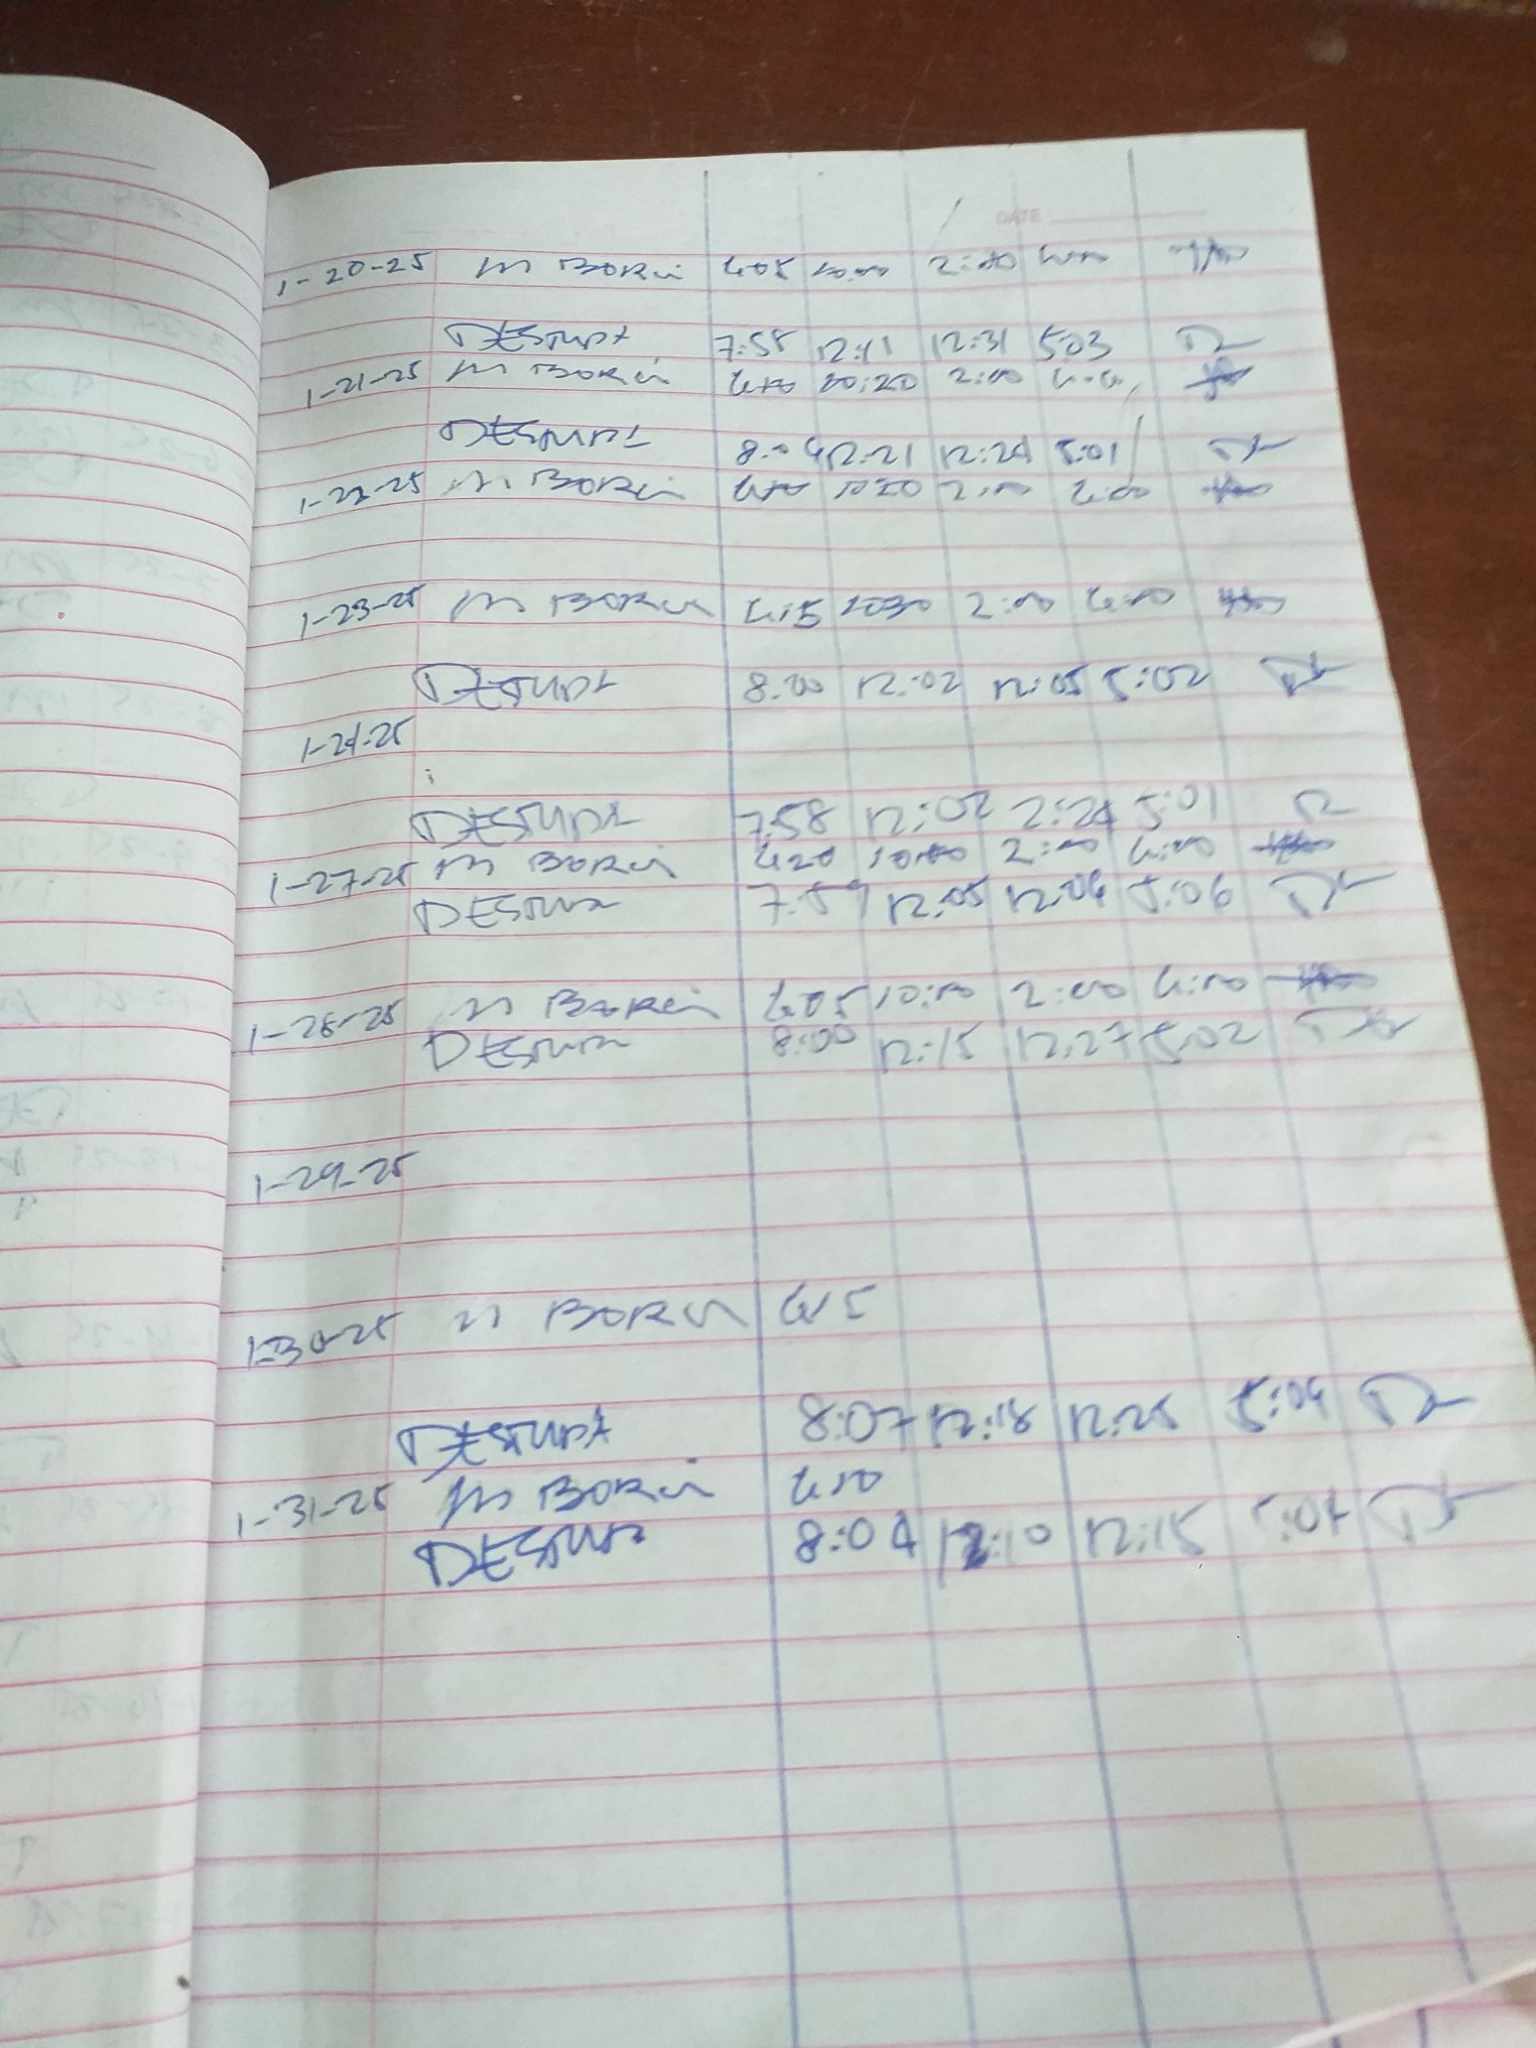 DATE
1-20-25 M BORJ 4:05 10:00 2:00 4:00
DESTUDA 7:58 12:11 12:31 5:03
1-21-25 M BORJ 4:10 10:20 2:00
8:04 12:21 12:24 5:01
1-22-25 M BORJ 4:10 10:20 2:00 4:00
1-23-25 M BORJ 4:15 1030 2:00 4:00
DESTUDA 8:00 12:02 12:05 5:02
1-24-25
DESTUDA 7:58 12:02 2:24 5:01
1-27-25 M BORJ 420 10:00 2:00 4:00
7:59 12:05 12:06 5:06
1-28-25 M BORJ 405 10:00 2:00 4:00
8:00 12:15 12:27 5:02
1-29-25
1-30-25 M BORJ
DESTUDA 8:07 12:18 12:25 5:04
1-31-25 M BORJ 4:10
DESTUDA 8:04 12:10 12:15